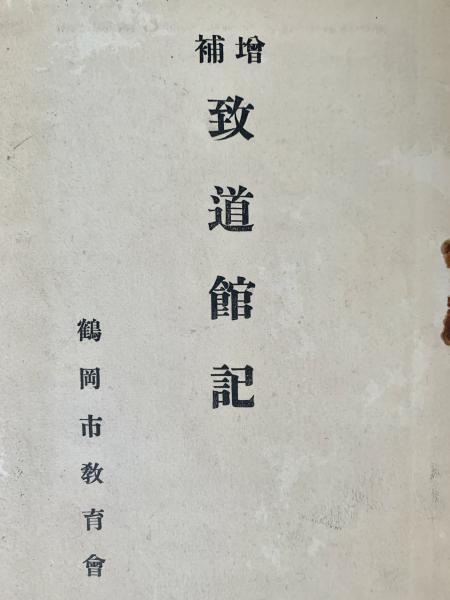 增補
致道館記
鶴岡市敎育會